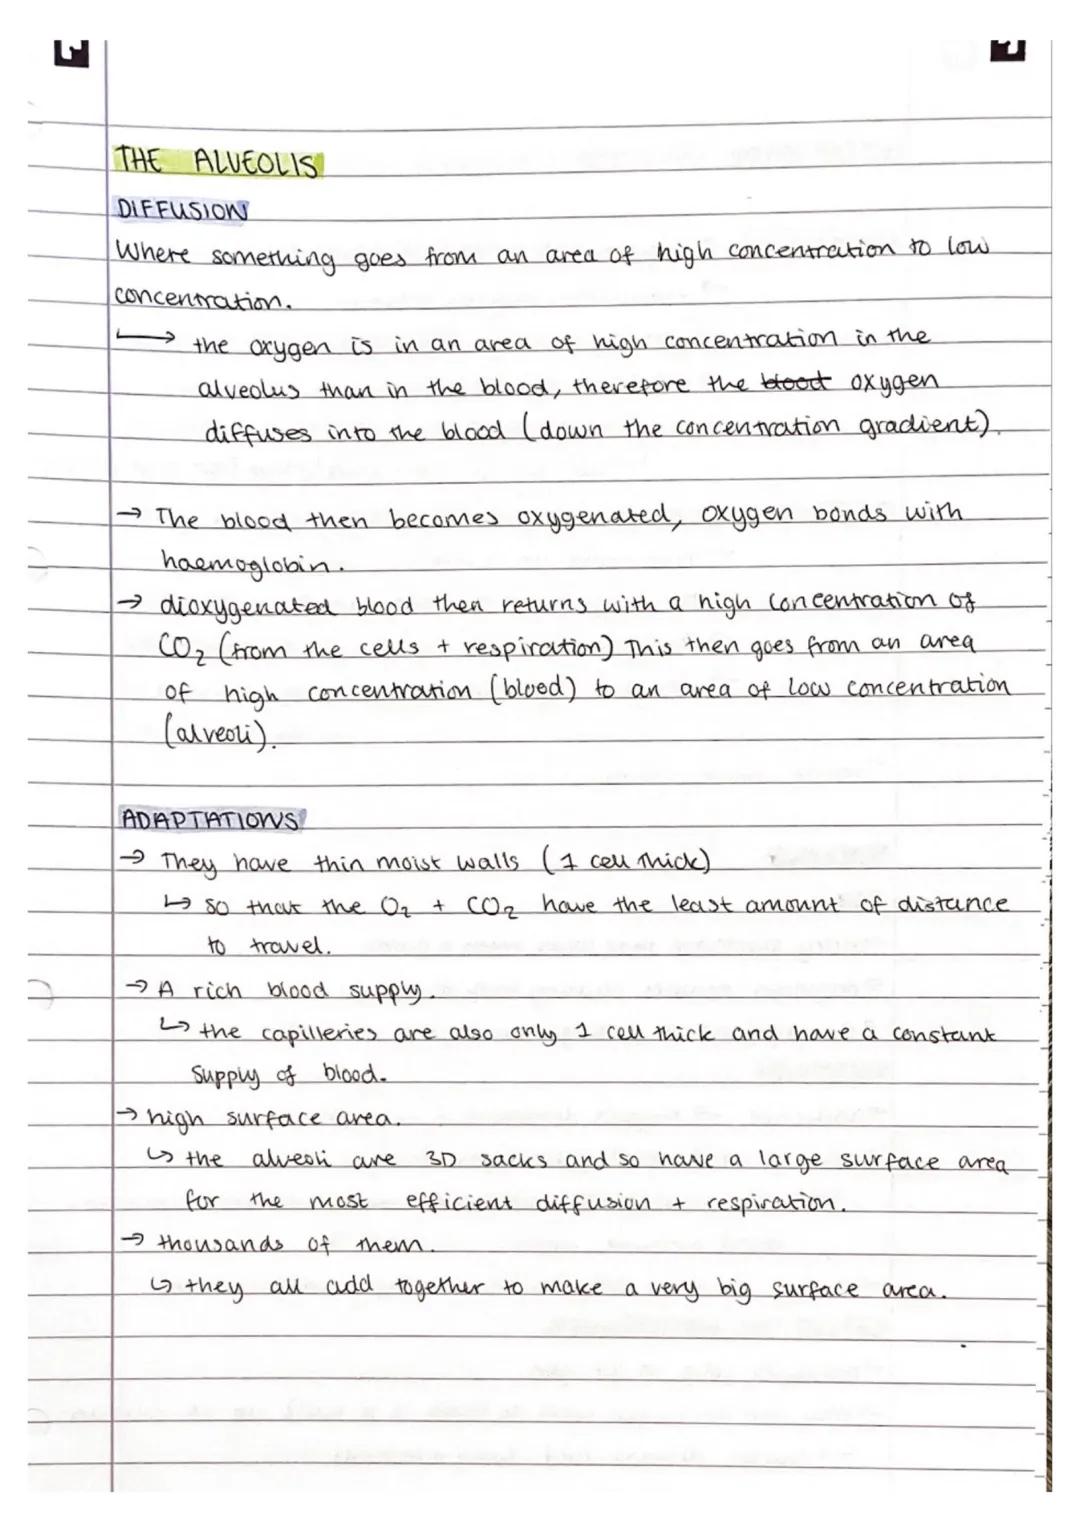 THE ALVEOLIS
DIFFUSION
Where something goes from an area of high concentration to low
concentration.
↳ the oxygen is in an area of high concentration in the
alveolus than in the blood, therefore the blood oxygen
diffuses into the blood (down the concentration gradient).
→ The blood then becomes oxygenated, oxygen bonds with
haemoglobin.
→ dioxygenated blood then returns with a high concentration of
CO₂ (from the cells + respiration) This then goes from an area
of high concentration (blood) to an area of low concentration
(alveoli).
ADAPTATIONS
→ They have thin moist walls (1 cell thick)
↳ so that the O₂ + CO₂ have the least amount of distance
to travel.
→ A rich blood supply.
↳ the capilleries are also only 1 cell thick and have a constant
supply of blood.
→ high surface area.
↳ the alveoli are 3D sacks and so have a large surface area
for the most efficient diffusion + respiration.
→ thousands of them.
↳ they all add together to make a very big surface area.